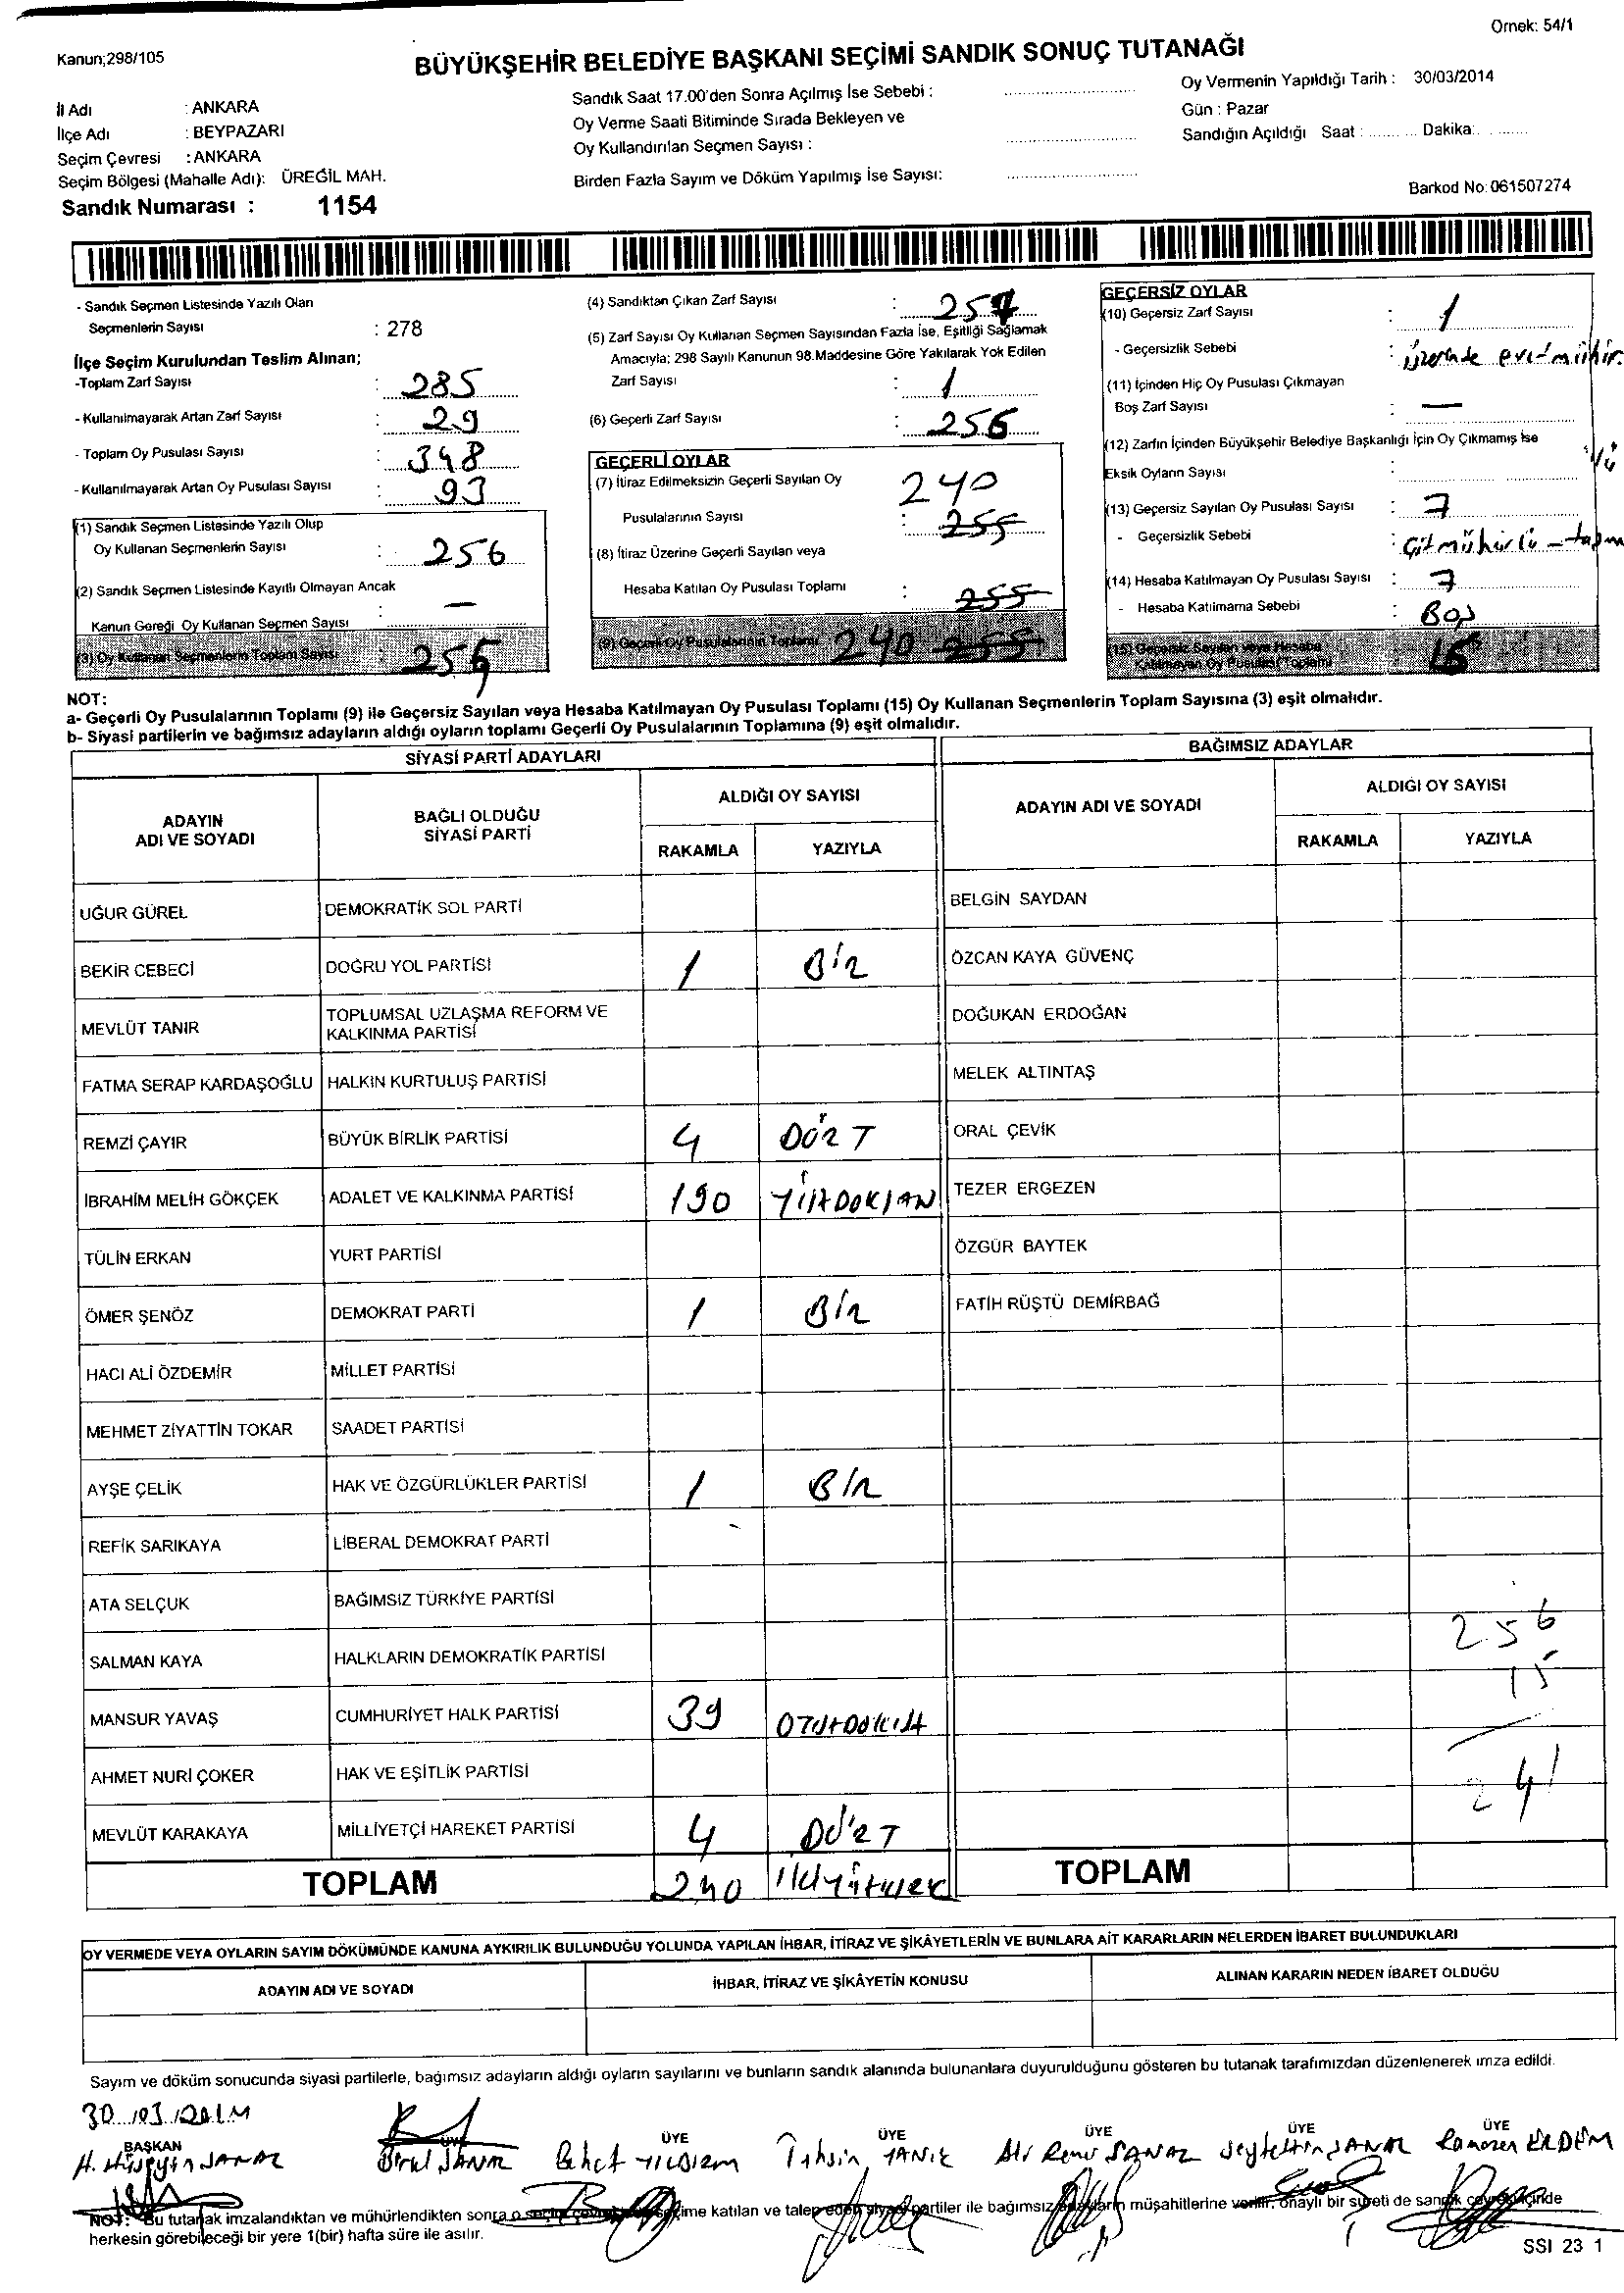 Örnek: 54/1
Kanun;298/105
BÜYÜKŞEHİR BELEDİYE BAŞKANI SEÇİMİ SANDIK SONUÇ TUTANAĞI
İl Adı : ANKARA
İlçe Adı : BEYPAZARI
Seçim Çevresi : ANKARA
Seçim Bölgesi (Mahalle Adı): ÜREĞİL MAH.
Sandık Numarası : 1154
Sandık Saat 17.00'den Sonra Açılmış İse Sebebi :
Oy Verme Saati Bitiminde Sırada Bekleyen ve
Oy Kullandırılan Seçmen Sayısı :
Birden Fazla Sayım ve Döküm Yapılmış İse Sayısı:
Oy Vermenin Yapıldığı Tarih : 30/03/2014
Gün : Pazar
Sandığın Açıldığı Saat : ........ Dakika: ........
Barkod No: 061507274
- Sandık Seçmen Listesinde Yazılı Olan
Seçmenlerin Sayısı : 278
İlçe Seçim Kurulundan Teslim Alınan;
-Toplam Zarf Sayısı : 285
- Kullanılmayarak Artan Zarf Sayısı : 29
- Toplam Oy Pusulası Sayısı : 348
- Kullanılmayarak Artan Oy Pusulası Sayısı : 93
(1) Sandık Seçmen Listesinde Yazılı Olup
Oy Kullanan Seçmenlerin Sayısı : 256
(2) Sandık Seçmen Listesinde Kayıtlı Olmayan Ancak
Kanun Gereği Oy Kullanan Seçmen Sayısı : —
(3) Oy Kullanan Seçmenlerin Toplam Sayısı : 256
(4) Sandıktan Çıkan Zarf Sayısı : 257
(5) Zarf Sayısı Oy Kullanan Seçmen Sayısından Fazla İse, Eşitliği Sağlamak
Amacıyla; 298 Sayılı Kanunun 98.Maddesine Göre Yakılarak Yok Edilen
Zarf Sayısı : 1
(6) Geçerli Zarf Sayısı : 256
GEÇERLİ OYLAR
(7) İtiraz Edilmeksizin Geçerli Sayılan Oy 240
Pusulalarının Sayısı : 255
(8) İtiraz Üzerine Geçerli Sayılan veya
Hesaba Katılan Oy Pusulası Toplamı : 255
(9) Geçerli Oy Pusulalarının Toplamı : 240 255
GEÇERSİZ OYLAR
(10) Geçersiz Zarf Sayısı : 1
- Geçersizlik Sebebi : üzerinde evet mühür
(11) İçinden Hiç Oy Pusulası Çıkmayan
Boş Zarf Sayısı : —
(12) Zarfın İçinden Büyükşehir Belediye Başkanlığı İçin Oy Çıkmamış İse
Eksik Oyların Sayısı :
(13) Geçersiz Sayılan Oy Pusulası Sayısı : 7
- Geçersizlik Sebebi : Çift mühürlü -
(14) Hesaba Katılmayan Oy Pusulası Sayısı : 7
- Hesaba Katılmama Sebebi : Boş
(15) Geçersiz Sayılan veya Hesaba
Katılmayan Oy Pusulası Toplamı :
NOT:
a- Geçerli Oy Pusulalarının Toplamı (9) ile Geçersiz Sayılan veya Hesaba Katılmayan Oy Pusulası Toplamı (15) Oy Kullanan Seçmenlerin Toplam Sayısına (3) eşit olmalıdır.
b- Siyasi partilerin ve bağımsız adayların aldığı oyların toplamı Geçerli Oy Pusulalarının Toplamına (9) eşit olmalıdır.
SİYASİ PARTİ ADAYLARI
BAĞIMSIZ ADAYLAR
ADAYIN ADI VE SOYADI
BAĞLI OLDUĞU SİYASİ PARTİ
ALDIĞI OY SAYISI
RAKAMLA YAZIYLA
ADAYIN ADI VE SOYADI
ALDIĞI OY SAYISI
RAKAMLA YAZIYLA
UĞUR GÜREL DEMOKRATİK SOL PARTİ BELGİN SAYDAN
BEKİR CEBECİ DOĞRU YOL PARTİSİ 1 BİR ÖZCAN KAYA GÜVENÇ
MEVLÜT TANIR TOPLUMSAL UZLAŞMA REFORM VE KALKINMA PARTİSİ DOĞUKAN ERDOĞAN
FATMA SERAP KARDAŞOĞLU HALKIN KURTULUŞ PARTİSİ MELEK ALTINTAŞ
REMZİ ÇAYIR BÜYÜK BİRLİK PARTİSİ 4 DÖRT ORAL ÇEVİK
İBRAHİM MELİH GÖKÇEK ADALET VE KALKINMA PARTİSİ 190 YÜZDOKSAN TEZER ERGEZEN
TÜLİN ERKAN YURT PARTİSİ ÖZGÜR BAYTEK
ÖMER ŞENÖZ DEMOKRAT PARTİ 1 BİR FATİH RÜŞTÜ DEMİRBAĞ
HACI ALİ ÖZDEMİR MİLLET PARTİSİ
MEHMET ZİYATTİN TOKAR SAADET PARTİSİ
AYŞE ÇELİK HAK VE ÖZGÜRLÜKLER PARTİSİ 1 BİR
REFİK SARIKAYA LİBERAL DEMOKRAT PARTİ
ATA SELÇUK BAĞIMSIZ TÜRKİYE PARTİSİ
256
SALMAN KAYA HALKLARIN DEMOKRATİK PARTİSİ
15
MANSUR YAVAŞ CUMHURİYET HALK PARTİSİ 39 OTUZDOKUZ
AHMET NURİ ÇOKER HAK VE EŞİTLİK PARTİSİ
241
MEVLÜT KARAKAYA MİLLİYETÇİ HAREKET PARTİSİ 4 DÖRT
TOPLAM 240 İKİYÜZKIRK TOPLAM
OY VERMEDE VEYA OYLARIN SAYIM DÖKÜMÜNDE KANUNA AYKIRILIK BULUNDUĞU YOLUNDA YAPILAN İHBAR, İTİRAZ VE ŞİKÂYETLERİN VE BUNLARA AİT KARARLARIN NELERDEN İBARET BULUNDUKLARI
ADAYIN ADI VE SOYADI İHBAR, İTİRAZ VE ŞİKÂYETİN KONUSU ALINAN KARARIN NEDEN İBARET OLDUĞU
Sayım ve döküm sonucunda siyasi partilerle, bağımsız adayların aldığı oyların sayılarını ve bunların sandık alanında bulunanlara duyurulduğunu gösteren bu tutanak tarafımızdan düzenlenerek imza edildi.
30/03/2014
BAŞKAN ÜYE ÜYE ÜYE ÜYE ÜYE ÜYE
H. Hüseyin SANAL Birol SANAL Behçet YILDIRIM Tahsin TANIK Ali Remzi SANAL Seyfettin SANAL Ramazan ERDEM
NOT: Bu tutanak imzalandıktan ve mühürlendikten sonra o seçim çevresinde seçime katılan ve talep eden siyasi partiler ile bağımsız adayların müşahitlerine verilir, onaylı bir sureti de sandık çevresi içinde
herkesin görebileceği bir yere 1(bir) hafta süre ile asılır.
SSI 23 1